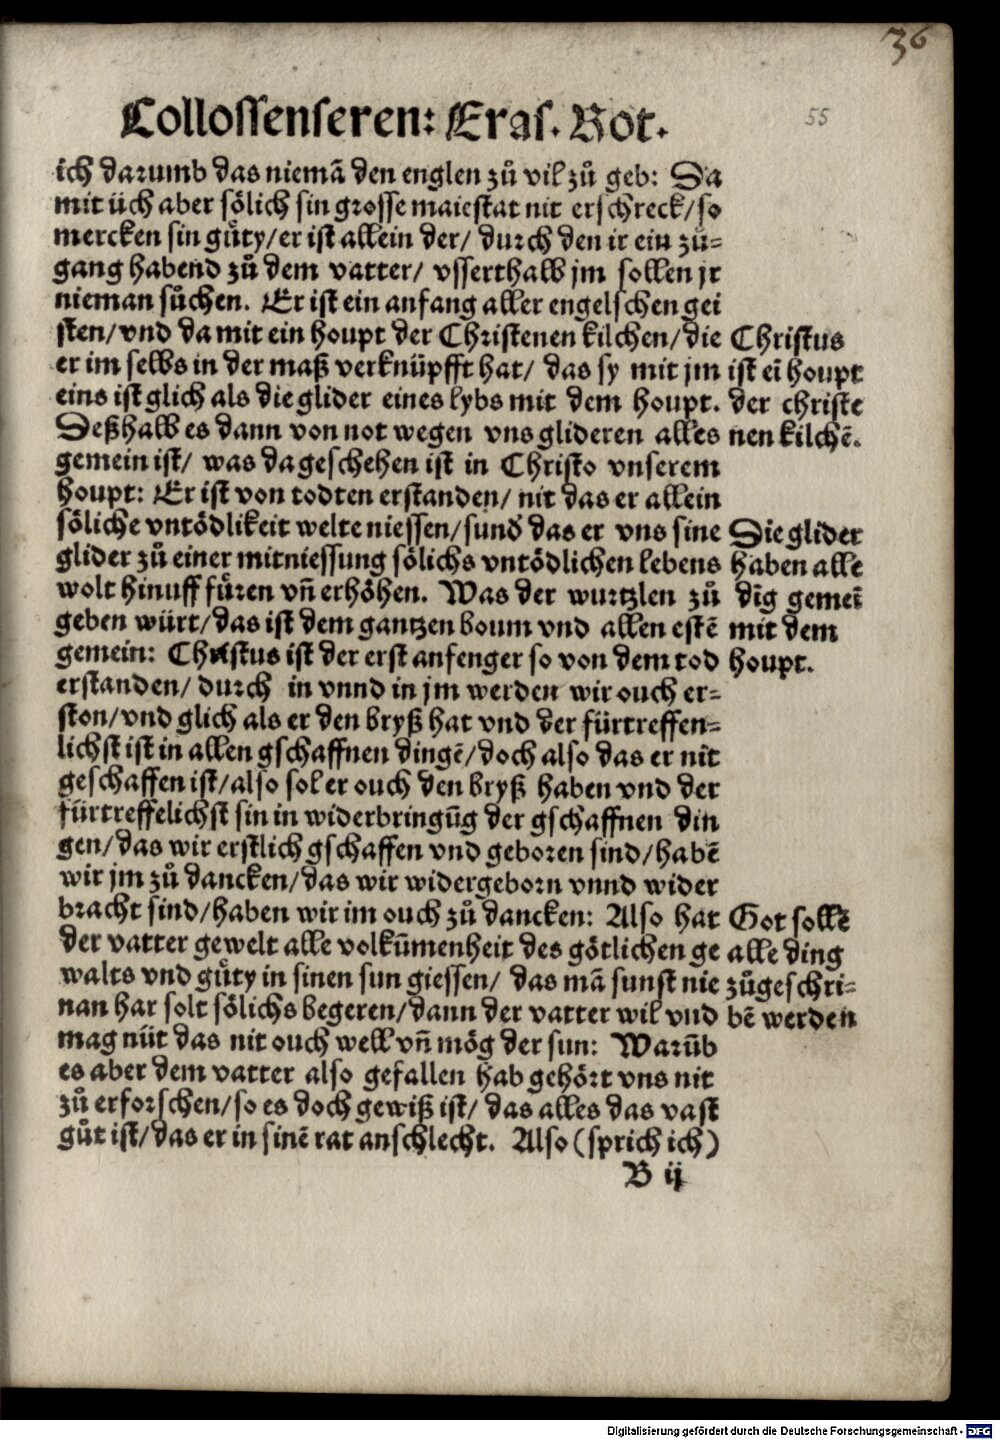 36
55
Collossenseren: Eras. Rot.
ich darumb das niemā den englen zů vil zů geb: Da
mit üch aber sölich sin grosse maiestat nit erschreck/so
mercken sin gůty/er ist allein der/ durch den ir ein zů=
gang habend zů dem vatter/ vsserthalb jm sollen jr
nieman sůchen. Er ist ein anfang aller engelschen gei
sten/vnd da mit ein houpt der Christenen kilchen/die
er im selbs in der maß verknüpfft hat/ das sy mit jm
eins ist glich als die glider eines lybs mit dem houpt.
Deßhalb es dann von not wegen vns glideren alles
gemein ist/ was da geschehen ist in Christo vnserem
houpt: Er ist von todten erstanden/ nit das er allein
söliche vntödlikeit welte niessen/sund̕ das er vns sine
glider zů einer mitniessung sölichs vntödlichen lebens
wolt hinuff fůren vn̄ erhöhen. Was der wurtzlen zů
geben würt/das ist dem gantzen boum vnd allen estē
gemein: Christus ist der erst anfenger so von dem tod
erstanden/ durch in vnnd in jm werden wir ouch er=
ston/vnd glich als er den bryß hat vnd der fürtreffen=
lichst ist in allen gschaffnen dingē/doch also das er nit
geschaffen ist/also sol er ouch den bryß haben vnd der
fürtreffelichst sin in widerbringūg der gschaffnen din
gen/das wir erstlich gschaffen vnd geboren sind/habē
wir jm zů dancken/das wir widergeborn vnnd wider
bracht sind/haben wir im ouch zů dancken: Also hat
der vatter gewelt alle volkūmenheit des götlichen ge
walts vnd gůty in sinen sun giessen/ das mā sunst nie
nan har solt sölichs begeren/dann der vatter wil vnd
mag nüt das nit ouch well vn̄ mög der sun: Warūb
es aber dem vatter also gefallen hab gehört vns nit
zů erforschen/so es doch gewiß ist/ das alles das vast
gůt ist/das er in sinē rat anschlecht. Also (sprich ich)
B ij
Christus
ist eī houpt
der christe
nen kilchē.
Die glider
haben alle
dīg gemeī
mit dem
houpt.
Got sollē
alle ding
zůgeschri=
bē werden
Digitalisierung gefördert durch die Deutsche Forschungsgemeinschaft - DFG